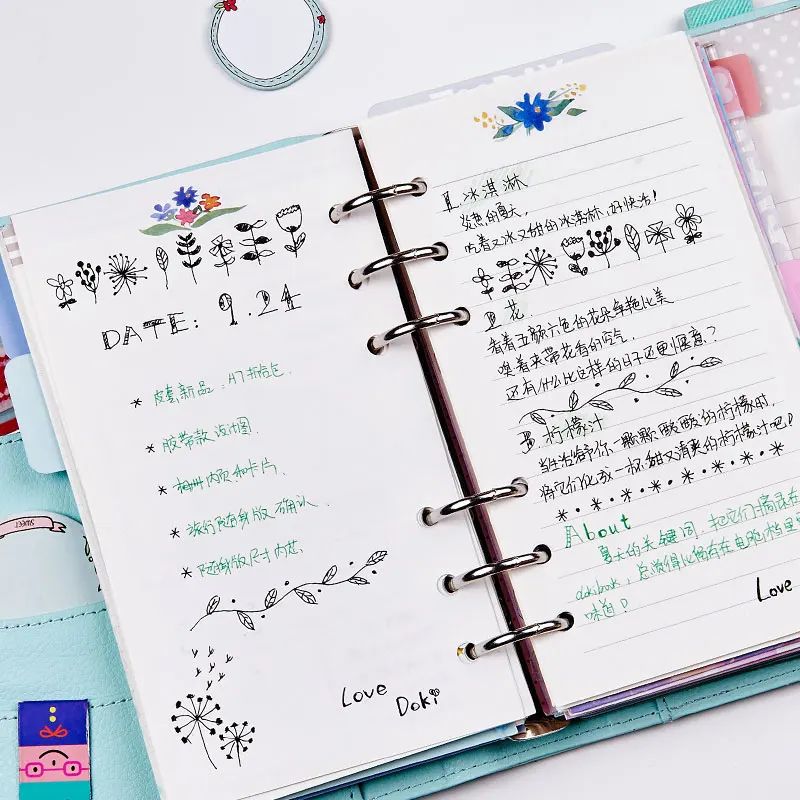 DATE: 9.24
* 皮套新品：A7折信包.
* 胶带款设计图.
* 内页和卡片.
* 旅行随身版确认.
* 随身版尺寸内芯.
Love
Doki
SWEET
1 冰淇淋
炎热的夏天,
吃着又冰又甜的冰淇淋,好快活!
2 花.
看着五颜六色的花朵争艳比美
嗅着夹带花香的空气.
还有什么比这样的日子还更惬意?
3 柠檬汁
当生活给予你一颗颗酸酸的柠檬时,
将它们化成一杯甜又清爽的柠檬汁吧!
About
夏天的关键词,把它们摘录在
dokibook,总觉得比留存在电脑档里
味道!
Love